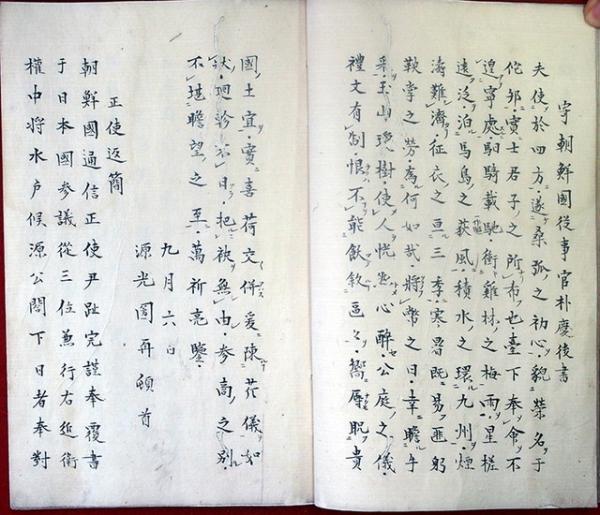 寄朝鮮國從事官朴慶後書
夫使於四方遂桑弧之初心貌榮名于
佗邦實士君子之所布也臺下奉命不
遑寧處駟騎載馳衝雞林之梅雨星槎
遠泛泊馬島之荻風積水之環九州烟
濤難濟征衣之亘三季寒暑既易匪躬
鞅掌之勞為何如哉將幣之日幸瞻手
采玉山瓊樹使人恍忽心醉公庭之儀
禮文有制恨不能飲歓區々嚮辱貺貴
國土宜實喜荷交併爰陳芹儀如
狀迴軫不日把袂無由参商之別
不堪瞻望之至萬祈亮鑒
九月六日
源光圀再頓首
正使返簡
朝鮮國通信正使尹趾完謹奉覆書
于日本國參議從三位兼行右近衛
權中將水戶候源公閤下日者奉對